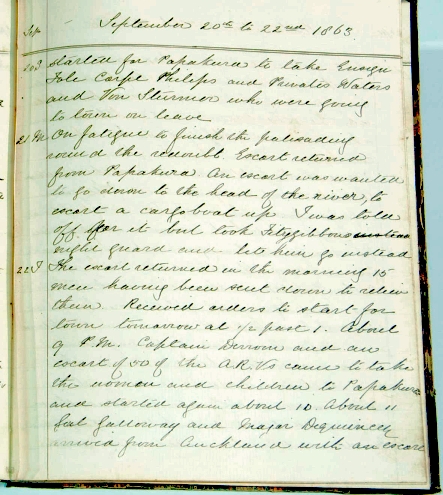 Sep September 20th to 22nd 1863.
20 S started for Papakura to take Ensign
Jole Corpl Philips and Privates Waters
and Von Sturmer who were going
to town on leave
21 M On fatigue to finish the palisading
round the redoubt. Escort returned
from Papakura. An escort was wanted
to go down to the head of the river, to
escort a cargoboat up I was told
off for it but took Fitzgibbons
night guard and lete him go instead
22 T The escort returned in the morning 15
men having been sent down to relieve
them. Received orders to start for
town tomorrow at 1/2 past 1. About
9 P.M. Captain Derrom and an
escort of 50 of the A.R.Vs came to take
the women and children to Papakura
and started again about 10. About 11
Galloway and Major
arrived from Auckland with an escort